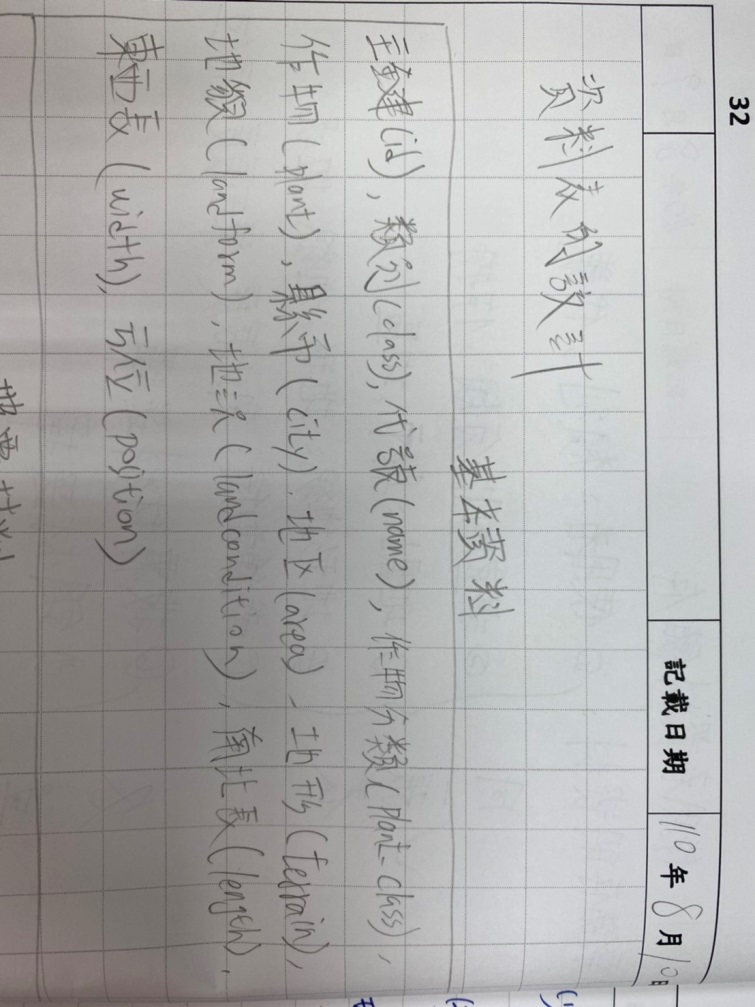 32
記載日期 110年8月10日
資料表的設計
基本資料
主鍵(id), 類別(class), 代號(name), 作物分類(plant-class),
作物(plant), 縣市(city), 地区(area), 地形(terrain),
地貌(landform), 地況(landcondition), 南北長(length),
東西長(width), 方位(position)